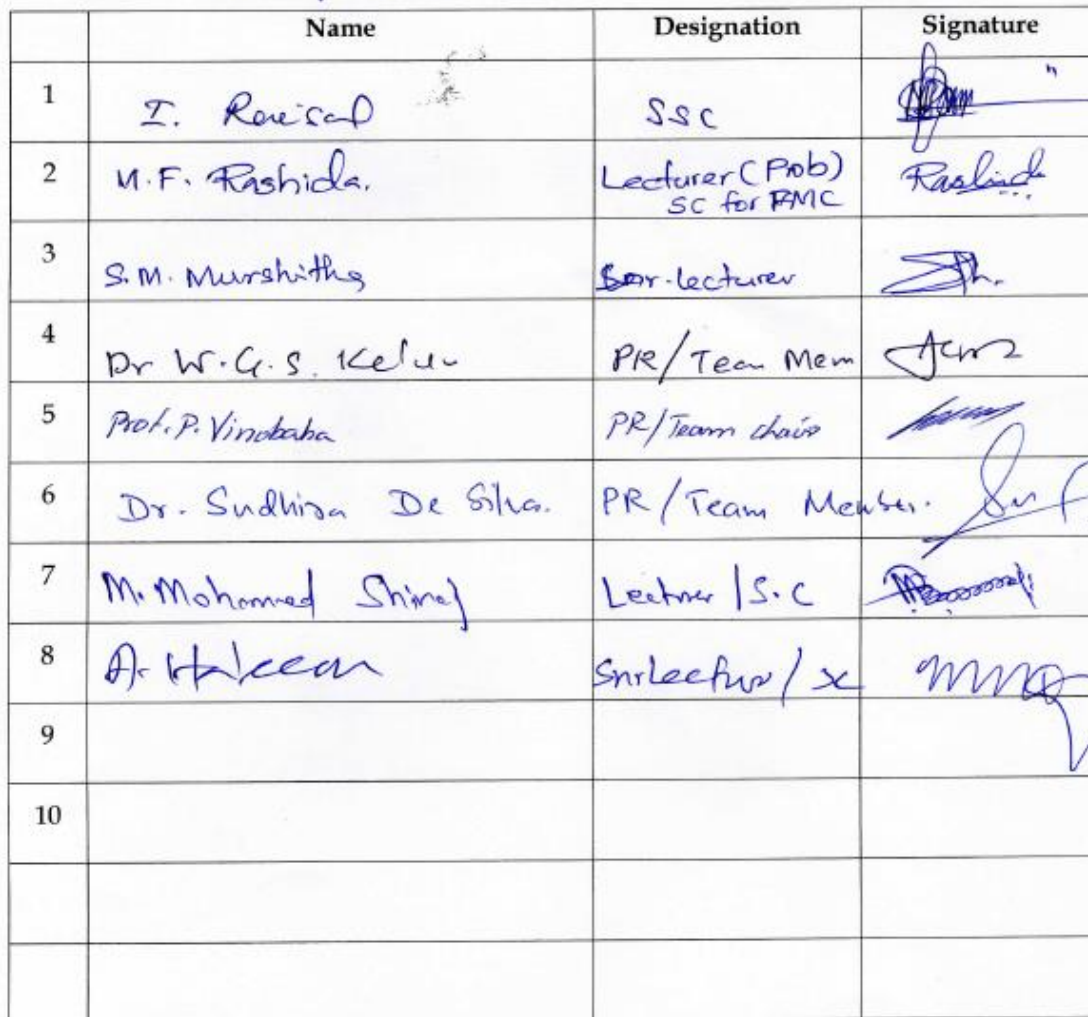 Name Designation Signature
1 I. SSC
2 M.F. Rashida. Lecturer (Prob) Rashida
SC for PMC
3 S.M. Murshitha lecturer
4 Dr W.G.S. PR/Team Mem
5 Prof. P. Vinobaba PR/Team chair
6 Dr. Sudhira De Silva. PR/Team Member.
7 M. Mohamed Shiraj Lecturer / S.C
8 A. Haleem Snr Lecturer /
9
10